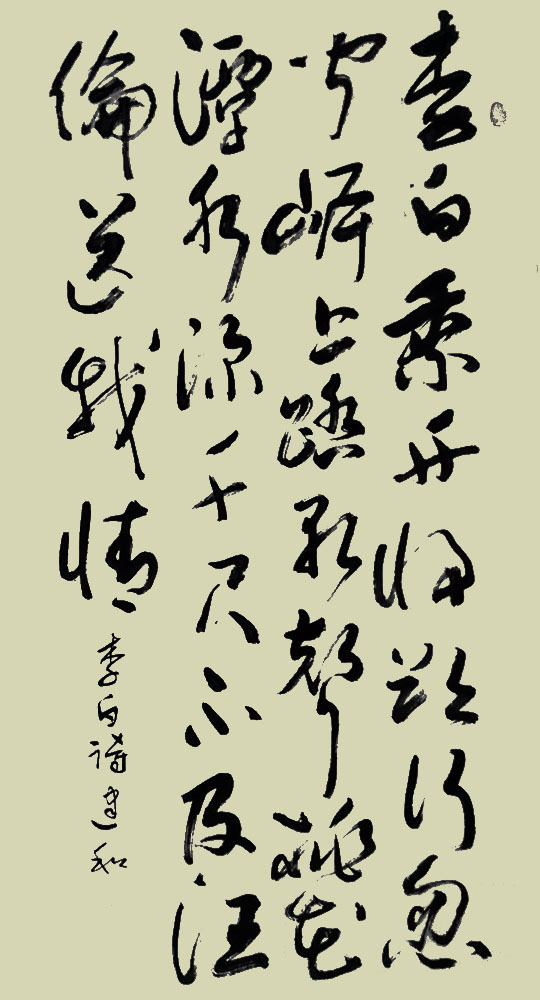 李白乘舟將欲行忽
聞岸上踏歌聲桃花
潭水深千尺不及汪
倫送我情
李白詩建和